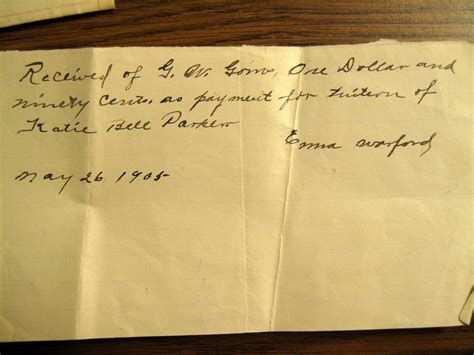 Received of G. W. Goins, One Dollar and
ninety cents, as payment for tuition of
Katie Bell Parker
Emma Warford
May 26 1905